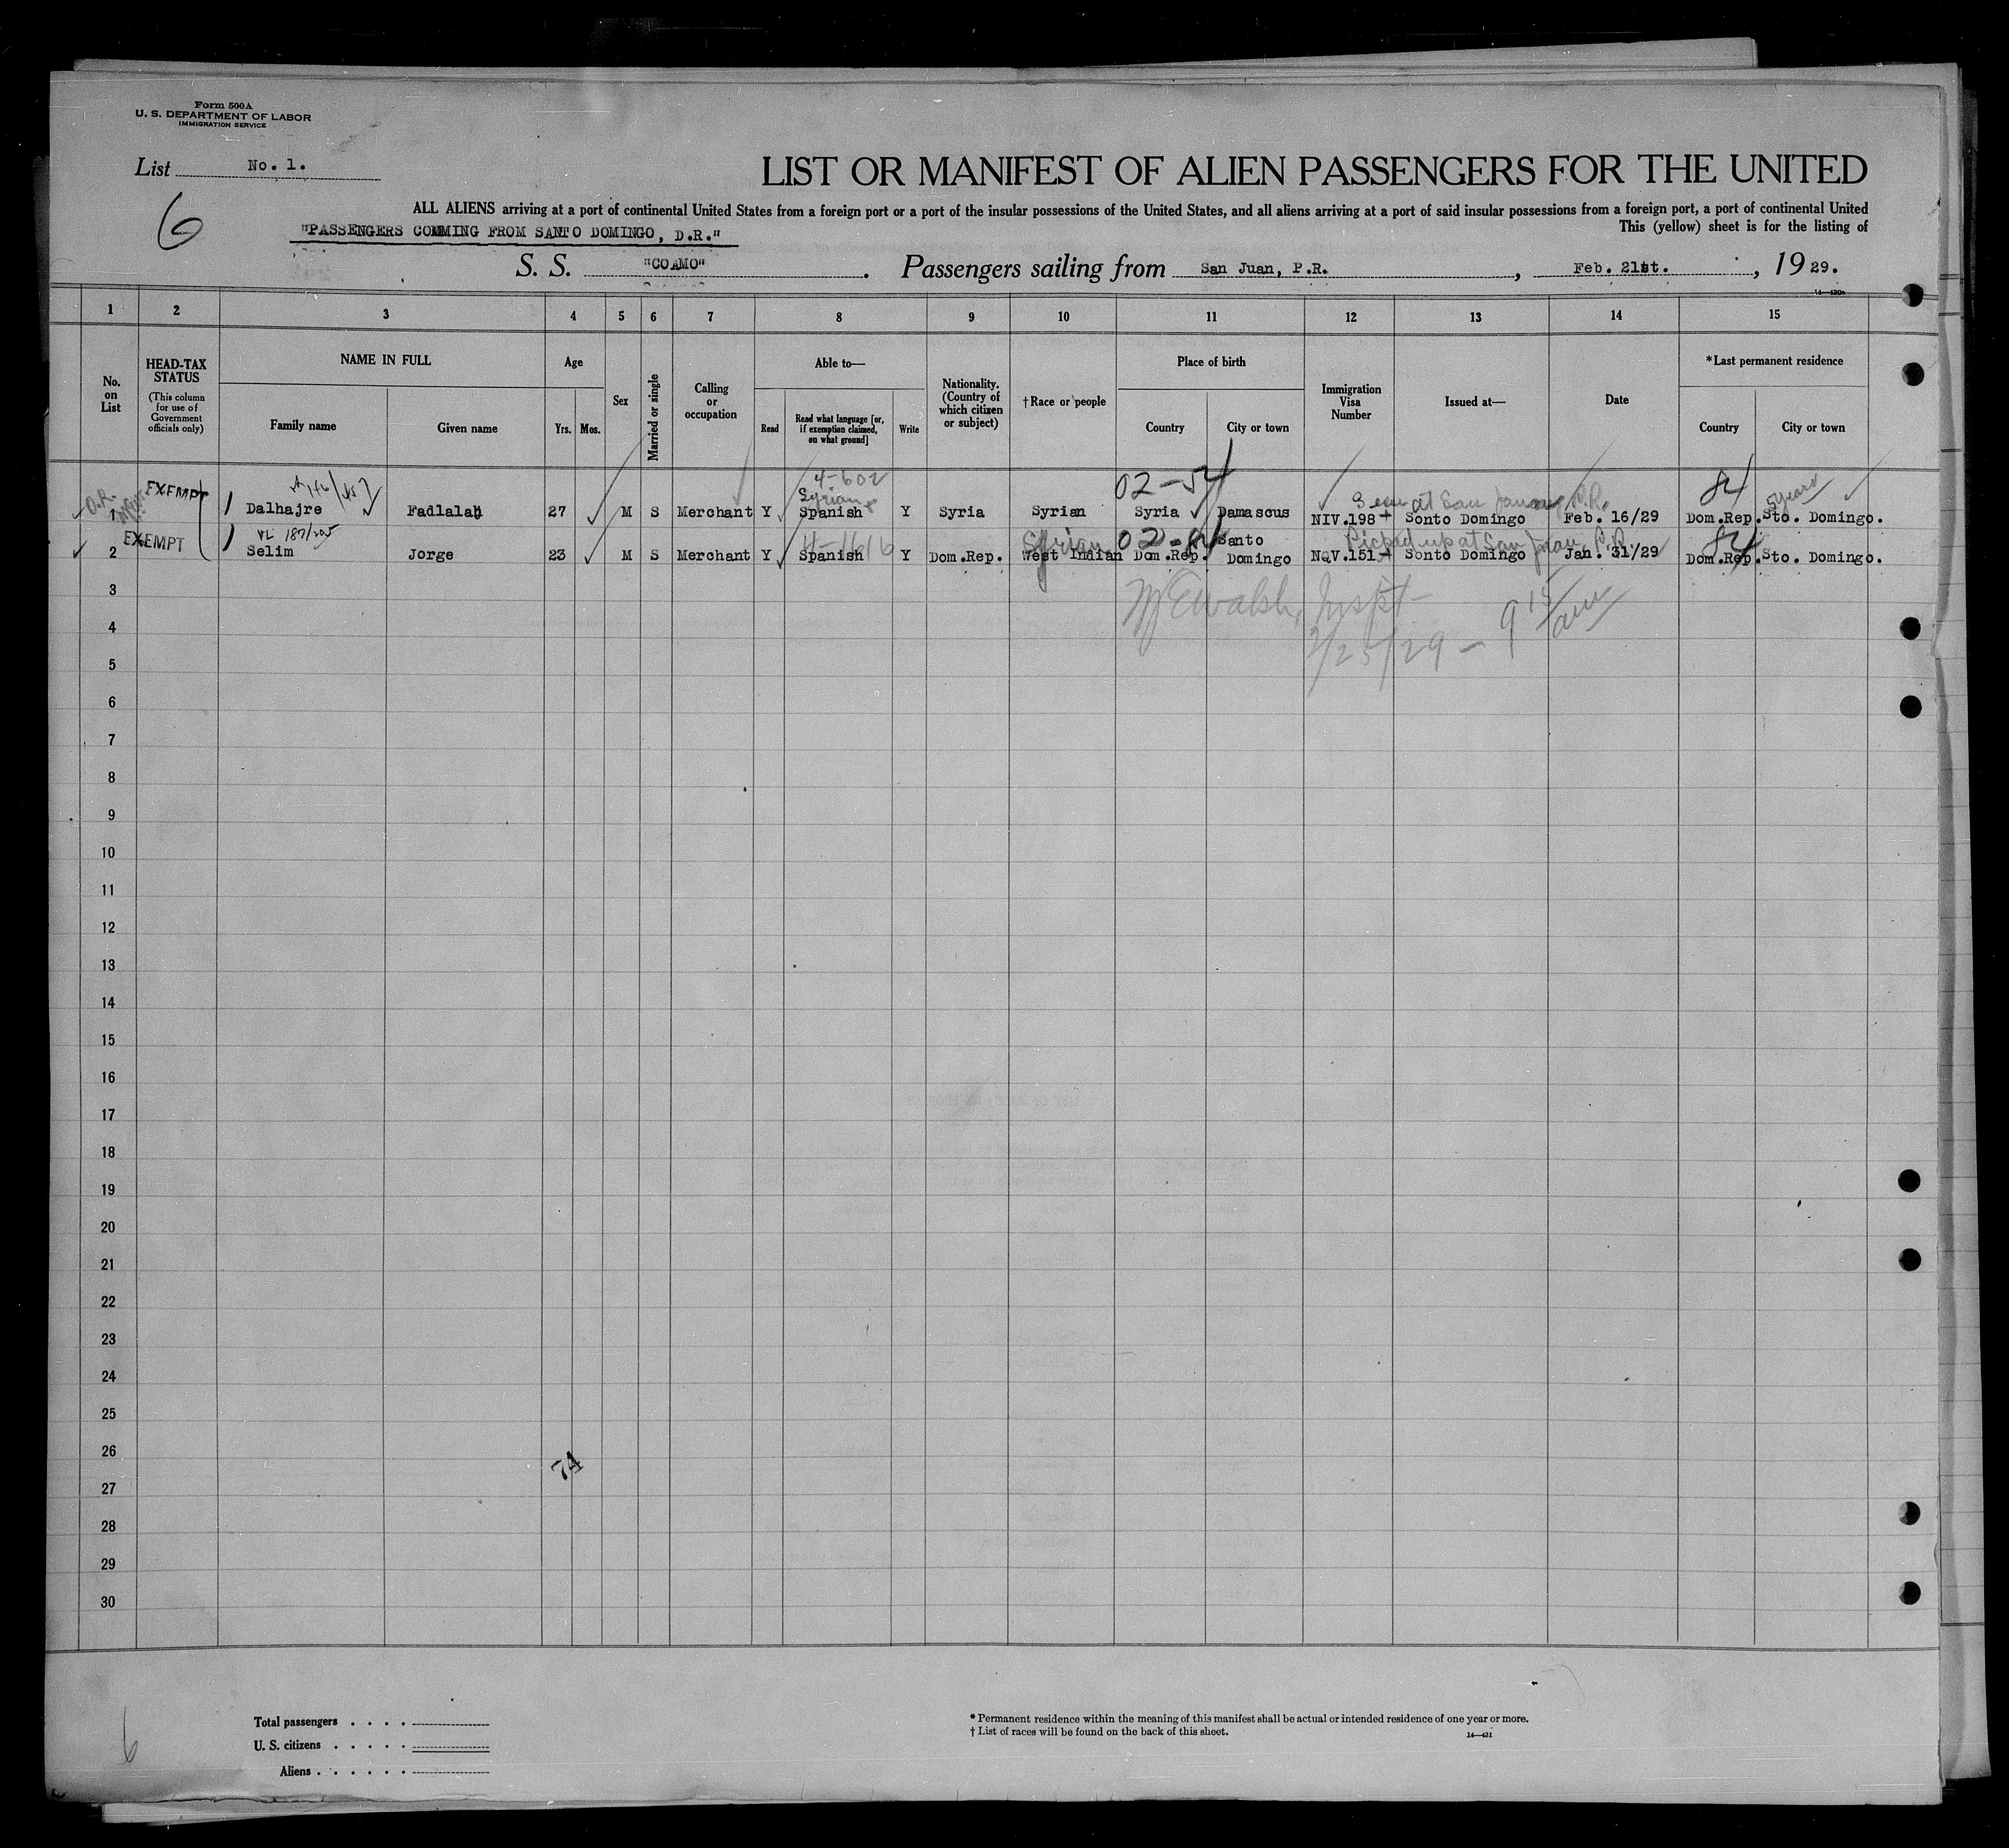 Form 500A
U. S. DEPARTMENT OF LABOR
IMMIGRATION SERVICE
List No. 1.
LIST OR MANIFEST OF ALIEN PASSENGERS FOR THE UNITED
6
ALL ALIENS arriving at a port of continental United States from a foreign port or a port of the insular possessions of the United States, and all aliens arriving at a port of said insular possessions from a foreign port, a port of continental United
"PASSENGERS COMMING FROM SANTO DOMINGO, D.R."
This (yellow) sheet is for the listing of
S. S. "COAMO". Passengers sailing from San Juan, P.R., Feb. 21st., 1929.
1 2 3 4 5 6 7 8 9 10 11 12 13 14 15
No. on List
HEAD-TAX STATUS
(This column for use of Government officials only)
NAME IN FULL
Family name
Given name
Age
Yrs. Mos.
Sex
Married or single
Calling or occupation
Able to—
Read
Read what language [or, if exemption claimed, on what ground]
Write
Nationality. (Country of which citizen or subject)
†Race or people
Place of birth
Country
City or town
Immigration Visa Number
Issued at—
Date
*Last permanent residence
Country
City or town
4-602
02-54
84
5 years
Syrian
Seen at San Juan, P.R.
1 EXEMPT Dalhajre Fadlalah 27 M S Merchant Y Spanish Y Syria Syrian Syria Damascus NIV.198 Sonto Domingo Feb. 16/29 Dom.Rep. Sto. Domingo.
VL 187/205
4-1616
Syrian
02-84
Picked up at San Juan, P.R.
84
2 EXEMPT Selim Jorge 23 M S Merchant Y Spanish Y Dom.Rep. West Indian Dom.Rep. Santo Domingo NQV.151 Sonto Domingo Jan. 31/29 Dom.Rep. Sto. Domingo.
3
Walsh, Inspt
9 15 am
4
2/25/29 -
5
6
7
8
9
10
11
12
13
14
15
16
17
18
19
20
21
22
23
24
25
26
74
27
28
29
30
Total passengers . . . .
U. S. citizens . . . . .
Aliens . . . . . .
6
* Permanent residence within the meaning of this manifest shall be actual or intended residence of one year or more.
† List of races will be found on the back of this sheet.
14—431